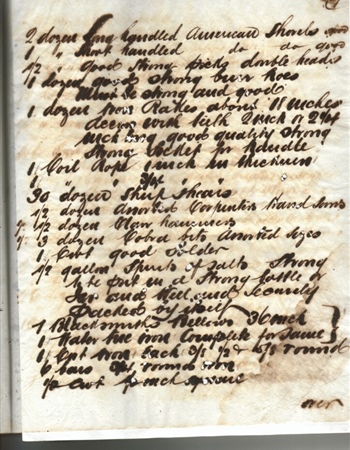 2 dozen Long handled American Shovels
1 " Short handled do do good
1/2 " Good Strong picks double heads
1 dozen good strong hoes
Must be strong and good
1 dozen Iron Rakes about 11 inches
with teeth 2 inch or 2 1/4
inch long good quality strong
Strong Socket for handle
1 Coil Rope 1 inch in thickness
1 " " 3/4 "
30 dozen Sheep Shears
1/2 dozen Assorted Carpenters Hand Saws
1/2 dozen Claw hammers
3 dozen bits Assorted sizes
1 Cwt good Solder
1/2 gallon Spirits of Salts Strong
to be put in a Strong bottle or
Jar and Well and Securely
Packed by itself
1 Blacksmiths Bellows 36 inch
1 Water Iron Complete for Same
1 Cwt Iron each 3/8 1/2 & 5/8 round
6 bars round iron
1/2 Cwt inch
over